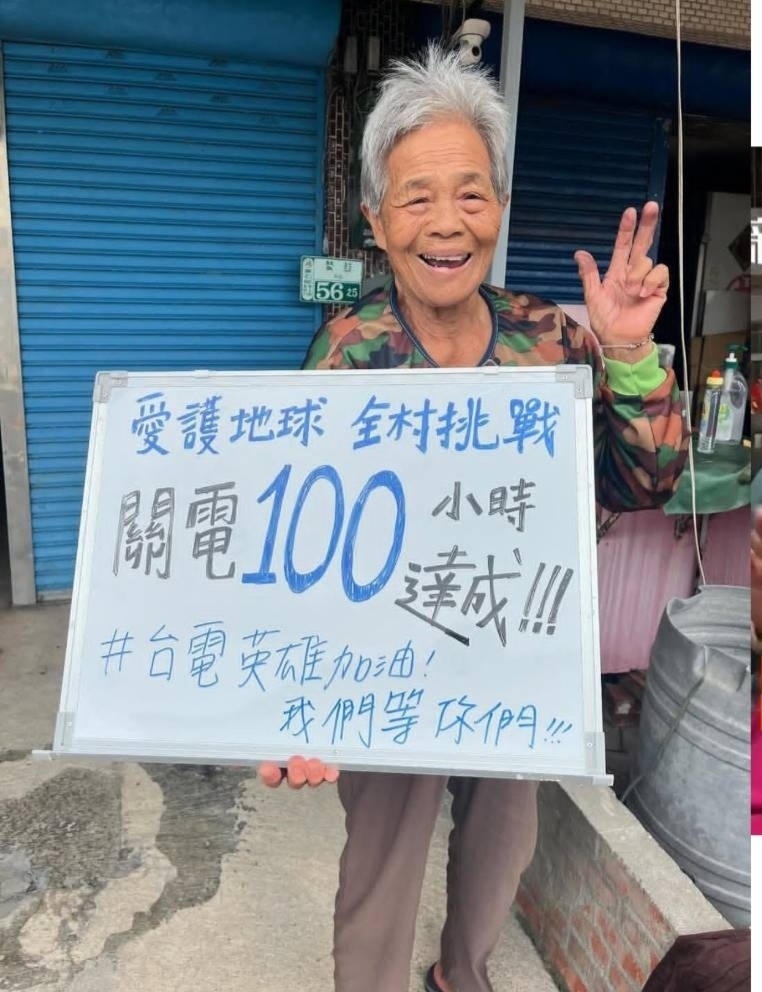 愛護地球 全村挑戰
關電100小時
達成!!!
#台電英雄加油!
我們等你們!!!
56之5